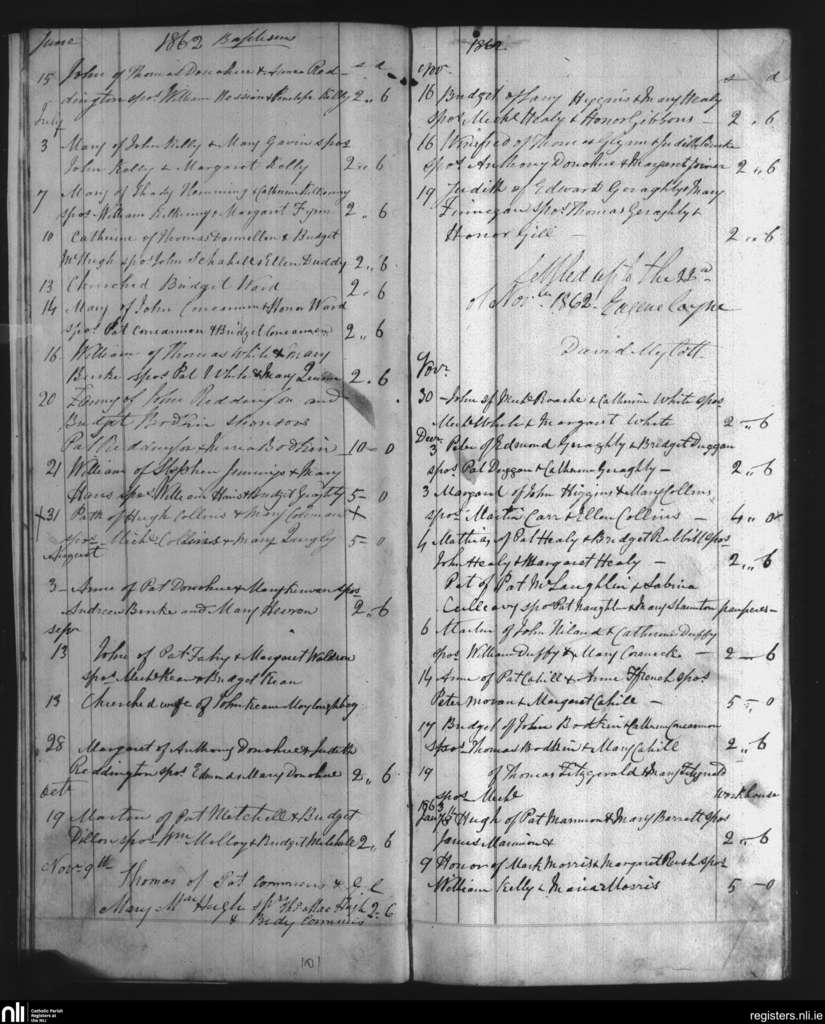 June 1862 Baptism
s d
15 John of Thomas Donohue & Red-
dington spos William Hession & Penelope Kelly 2 „ 6
July
3 Mary of John Kelly & Mary Gavin spos
John Kelly & Margaret Kelly 2 „ 6
7 Mary of Thady Hemming & Catherine Kilkenny
spos William Kilkenny & Margaret Flynn 2 „ 6
10 Catherine of Thomas Donnellan & Bridget
McHugh spos John & Ellen Duddy 2 „ 6
13 Churched Bridget Ward 2 „ 6
14 Mary of John Concannon & Honor Ward
spos Pat Concannon & Bridget Concannon 2 „ 6
16 William of Thomas White & Mary
Burke spos Pat White & Mary Quinn 2 „ 6
20 Fanny of John Reddington and
Bridget Bodkin sponsors
Pat Reddington & Maria Bodkin 10 - 0
21 William of Stephen Jennings & Mary
Hans spos William Hans & Bridget Geraghty 5 - 0
X 31 Patk of Hugh Collins & Mary Coleman X
spos Michl Collins & Mary Quigly 5 - 0
August
3 - Anne of Pat Donohue & Mary Kirwan spos
Andrew Burke and Mary Heron 2 „ 6
Sepr
13 John of Pat Fahy & Margaret Waldron
spos Michl Kean & Bridget Kean
13 Churched wife of John Keane
28 Margaret of Anthony Donohue & Judith
Reddington spos Edmund & Mary Donohue 2 „ 6
Octr
19 Martin of Pat Mitchell & Bridget
Dillon spos Wm Molloy & Bridget Mitchell 2 „ 6
Novr 9th
Thomas of Pat Commins &
Mary MacHugh sprs Thos MacHugh 2 - 6
& Bidy Commins
1862
Novr s d
16 Bridget of Lany Higgins & Mary Healy
spos Michl Healy & Honor Gibbons - 2 „ 6
16 Winifred of Thomas Glynn & Judith Burke
spos Anthony Donohue & Margaret Joiner 2 „ 6
19 Judith of Edward Geraghty & Mary
Finnegan spos Thomas Geraghty &
Honor Gill - 2 „ 6
Settled up to the 22nd
of Novr 1862. Eugene Coyne
David Mylott
Novr
30 - John of Michl Roache & Catherine White spos
Michl White & Margaret White 2 - 6
Decr
3 Peter of Edmund Geraghty & Bridget Duggan
spos Pat Duggan & Catherine Geraghty - 2 „ 6
3 Margaret of John Higgins & Mary Collins
spos Martin Carr & Ellen Collins - 4 „ 0
4 Mathias of Pat Healy & Bridget Rabbitt spos
John Healy & Margaret Healy - 2 „ 6
Pat of Pat McLaughlin & Sabina
Culleavy spos Pat Naughton & Mary Staunton paupers -
6 Martin of John Niland & Catherine Duffy
spos William Duffy & Mary - 2 - 6
14 Anne of Pat Cahill & Anne Ffrench spos
Peter Moran & Margaret Cahill - 5 - 0
17 Bridget of John Bodkin & Cathern Concannon
spos Thomas Bodkin & Mary Cahill 2 „ 6
19 of Thomas Fitzgerald & Mary Fitzgerald
spos Michl Workhouse
1863
Jany Hugh of Pat Mannion & Mary Barrett spos
James Mannion & 2 „ 6
9 Honor of Mark Morris & Margaret Rush spos
William Kelly & Maria Morris 5 - 0
nli
Catholic Parish
Registers at
the NLI
registers.nli.ie